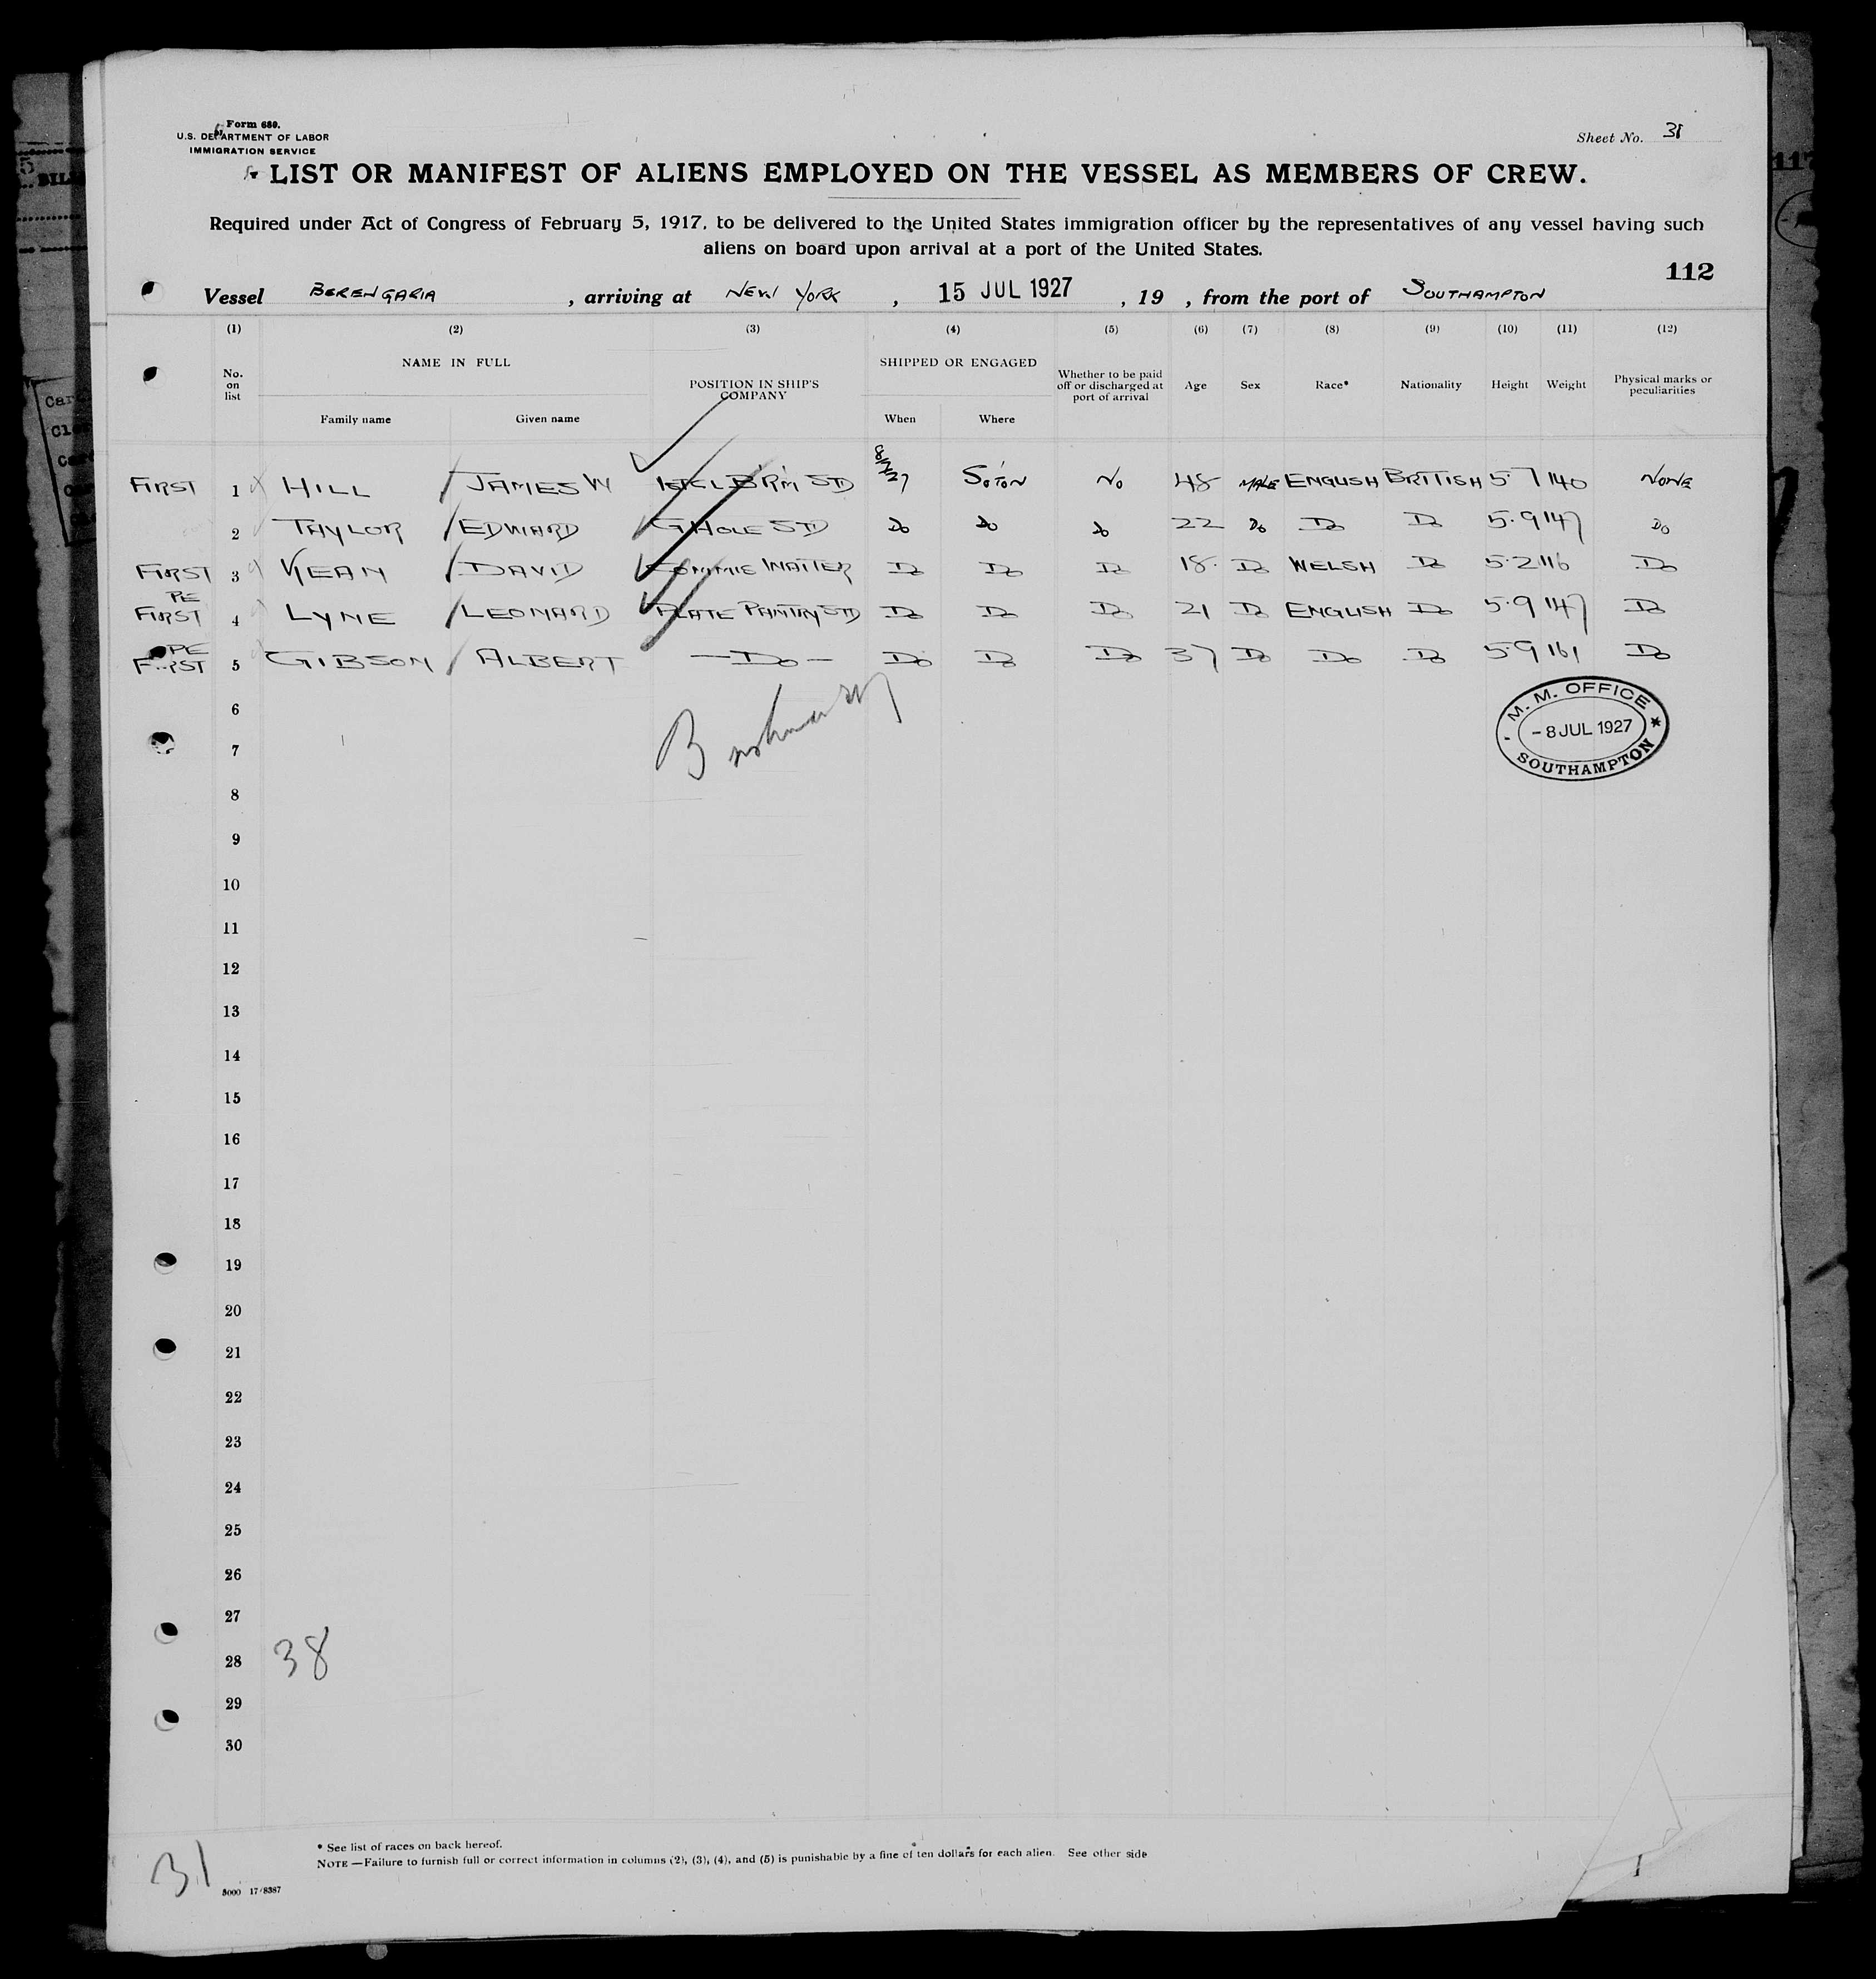 Form 680.
U.S. DEPARTMENT OF LABOR
IMMIGRATION SERVICE
Sheet No. 31
LIST OR MANIFEST OF ALIENS EMPLOYED ON THE VESSEL AS MEMBERS OF CREW.
Required under Act of Congress of February 5, 1917, to be delivered to the United States immigration officer by the representatives of any vessel having such
aliens on board upon arrival at a port of the United States.
112
Vessel BERENGARIA , arriving at NEW YORK , 15 JUL 1927 , 19 , from the port of SOUTHAMPTON
(1) (2) (3) (4) (5) (6) (7) (8) (9) (10) (11) (12)
No. on list
NAME IN FULL
Family name Given name
POSITION IN SHIP'S COMPANY
SHIPPED OR ENGAGED
When Where
Whether to be paid off or discharged at port of arrival
Age Sex Race* Nationality Height Weight
Physical marks or peculiarities
FIRST 1 HILL JAMES W STD 8/7/27 So'TON No 48 MALE ENGLISH BRITISH 5.7 140 NONE
2 TAYLOR EDWARD G HOLE STD Do Do Do 22 Do Do Do 5.9 147 Do
FIRST 3 KEAN DAVID COMMIE WAITER Do Do Do 18. Do WELSH Do 5.2 116 Do
PE
FIRST 4 LYNE LEONARD PLATE PANTRY STD Do Do Do 21 Do ENGLISH Do 5.9 147 Do
PE
FIRST 5 GIBSON ALBERT —Do— Do Do Do 37 Do Do Do 5.9 161 Do
6
M. M. OFFICE
-8 JUL 1927
SOUTHAMPTON
7
8
9
10
11
12
13
14
15
16
17
18
19
20
21
22
23
24
25
26
27
28 38
29
30
* See list of races on back hereof.
NOTE—Failure to furnish full or correct information in columns (2), (3), (4), and (5) is punishable by a fine of ten dollars for each alien. See other side
31
5000 17/8387